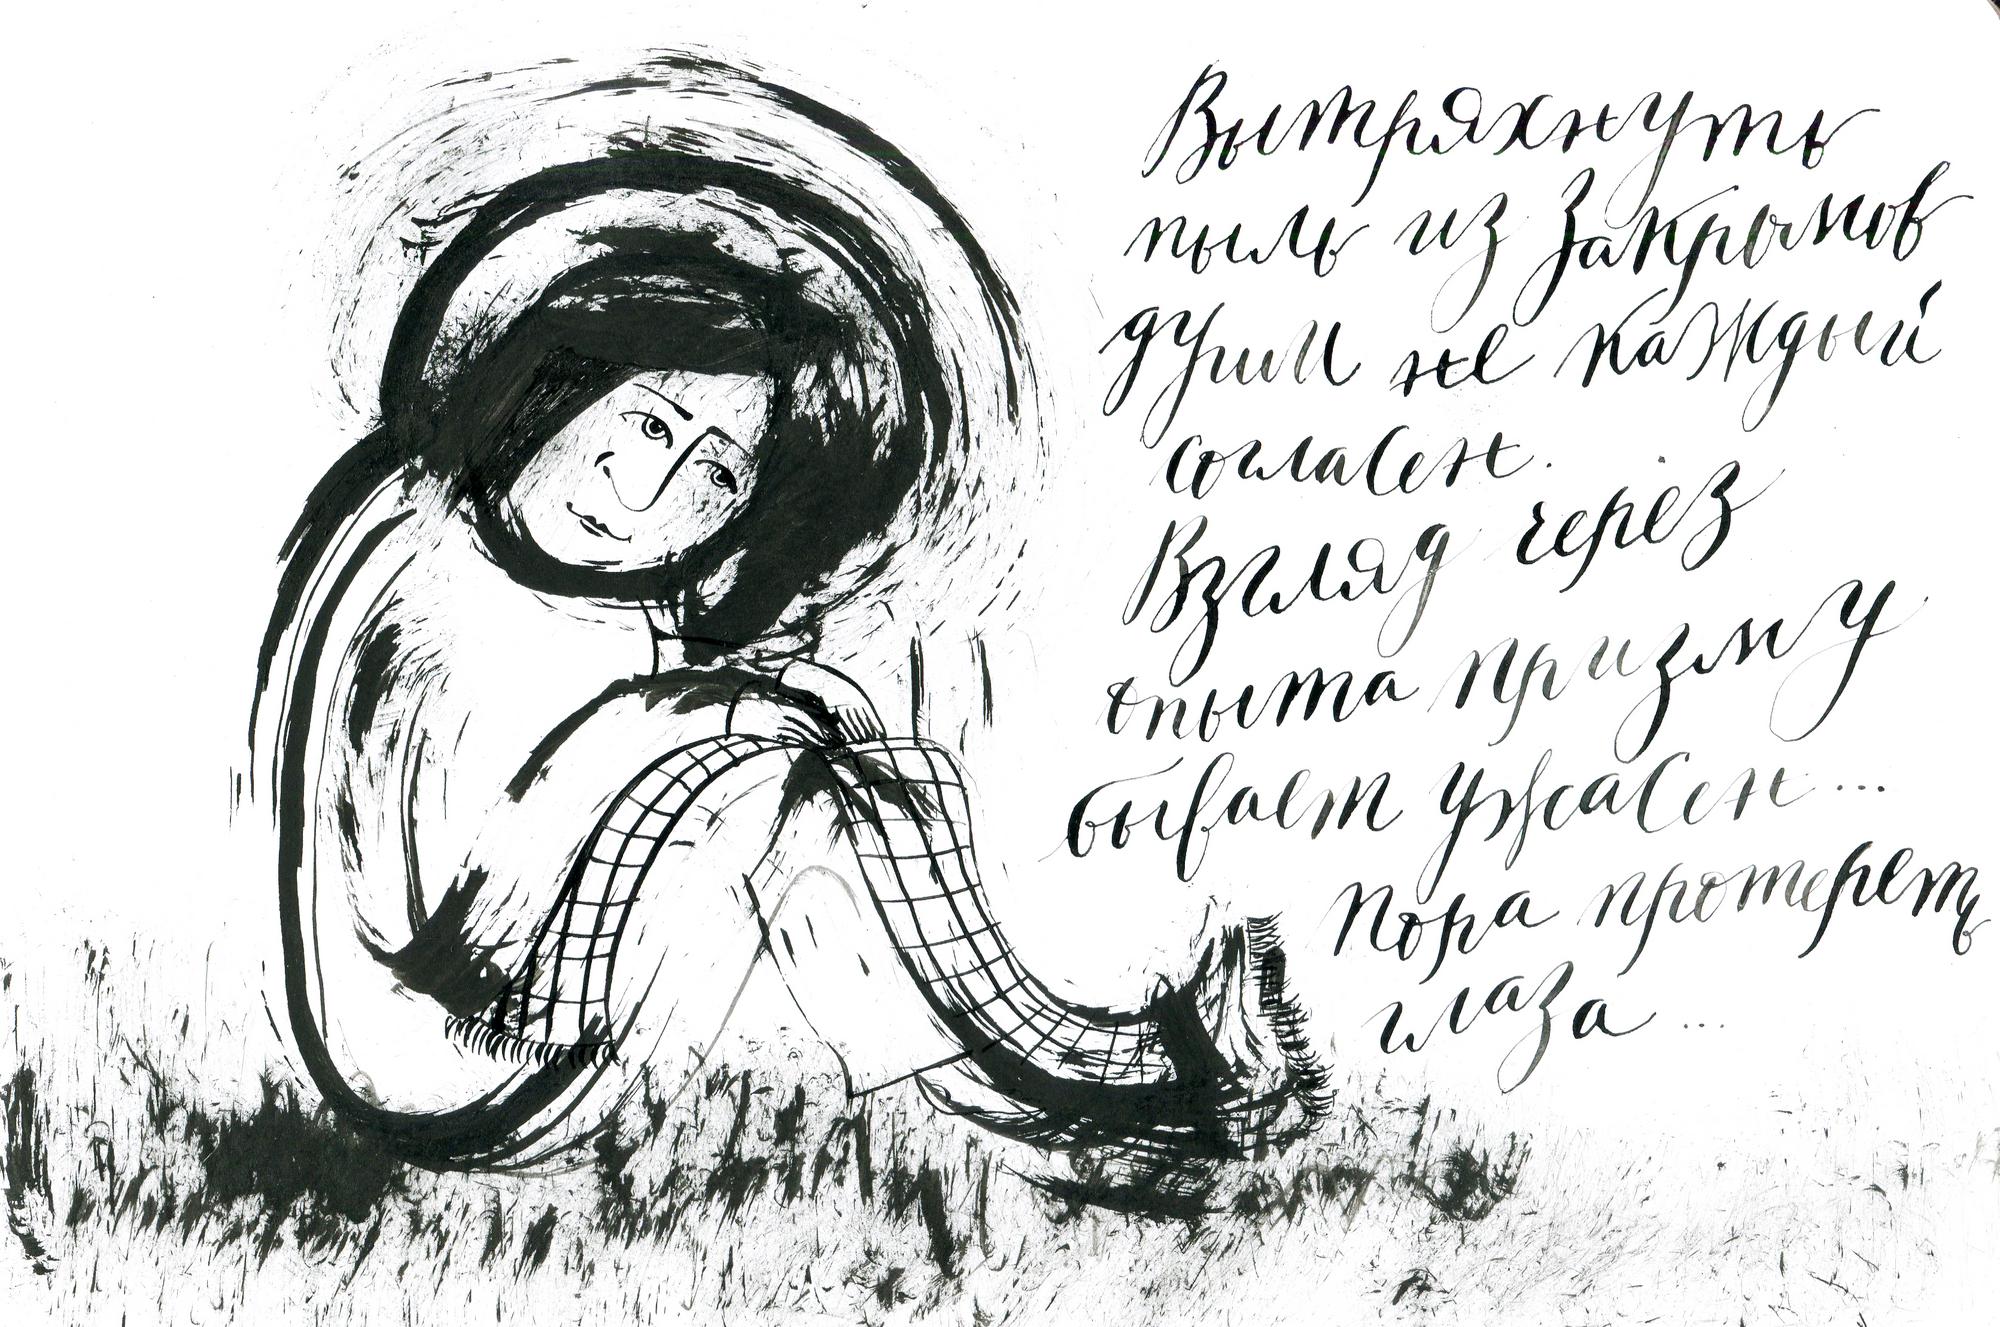 Вытряхнуть
пыль из Закромов
души не каждый
согласен.
Взгляд через
опыта призму
бывает ужасен...
Пора протереть
глаза...